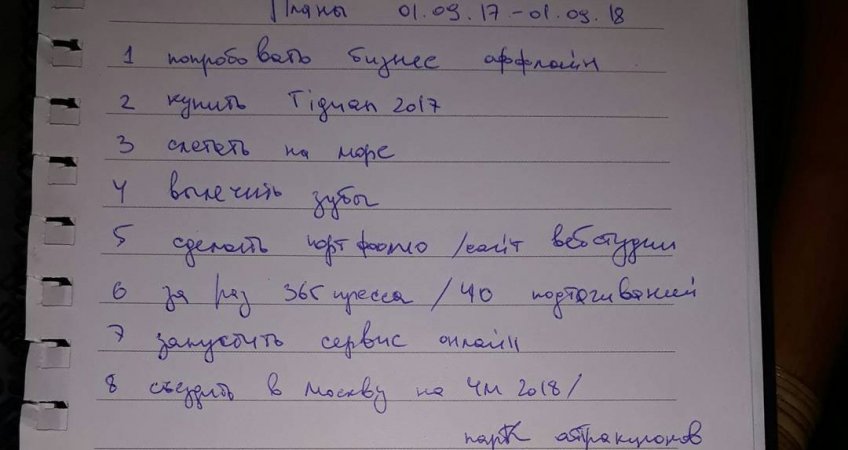 Планы 01.09.17-01.09.18
1 попробовать бизнес аффлайн
2 купить Tiguan 2017
3 слетать на море
4 вылечить зубы
5 сделать портфолио /сайт вебстудии
6 за раз 365 пресса / 40 подтягиваний
7 запустить сервис онлайн
8 съездить в Москву на ЧМ 2018/
парк атракционов